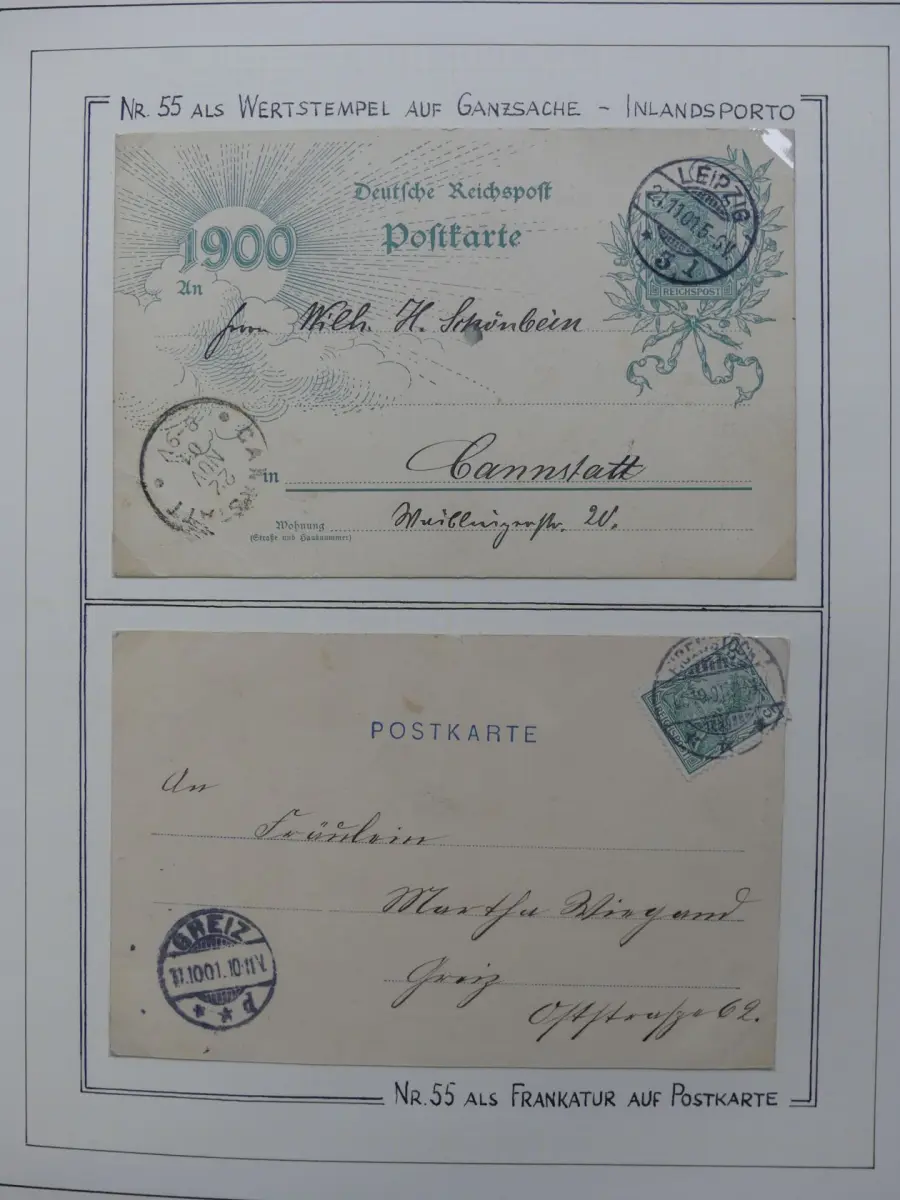 NR. 55 ALS WERTSTEMPEL AUF GANZSACHE – INLANDSPORTO
Deutsche Reichspost
Postkarte
1900
LEIPZIG
21.11.01.5-6V.
* 3.1 *
REICHSPOST
An
Herrn Wilh. H. Schönbein
CANNSTATT
22
NOV
in Cannstatt
Wohnung
(Straße und Hausnummer)
Waiblingerstr. 20.
POSTKARTE
An
Fräulein
Martha Wiegand
Greiz
Oststrasse 62.
GREIZ
11.10.01.10-11V.
* * p
NR. 55 ALS FRANKATUR AUF POSTKARTE